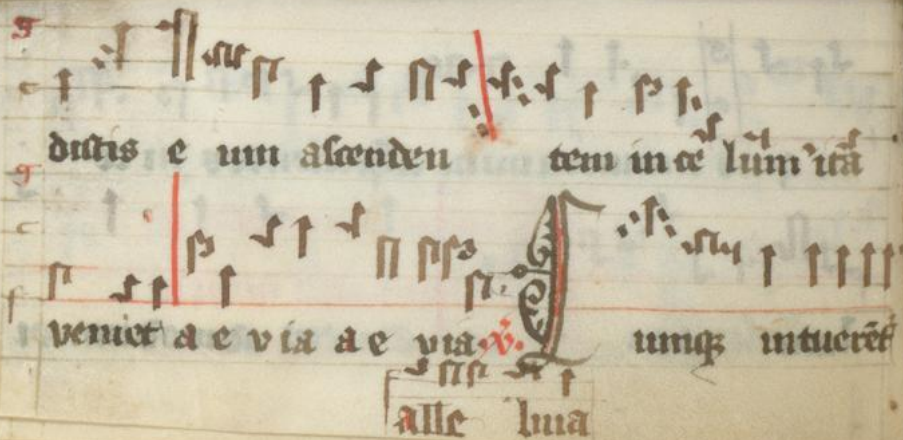 dictis e um ascenden tem in cē lūm ita
veniet a e v i a a e via ℣. C umqꝫ intuerēt
alle luia